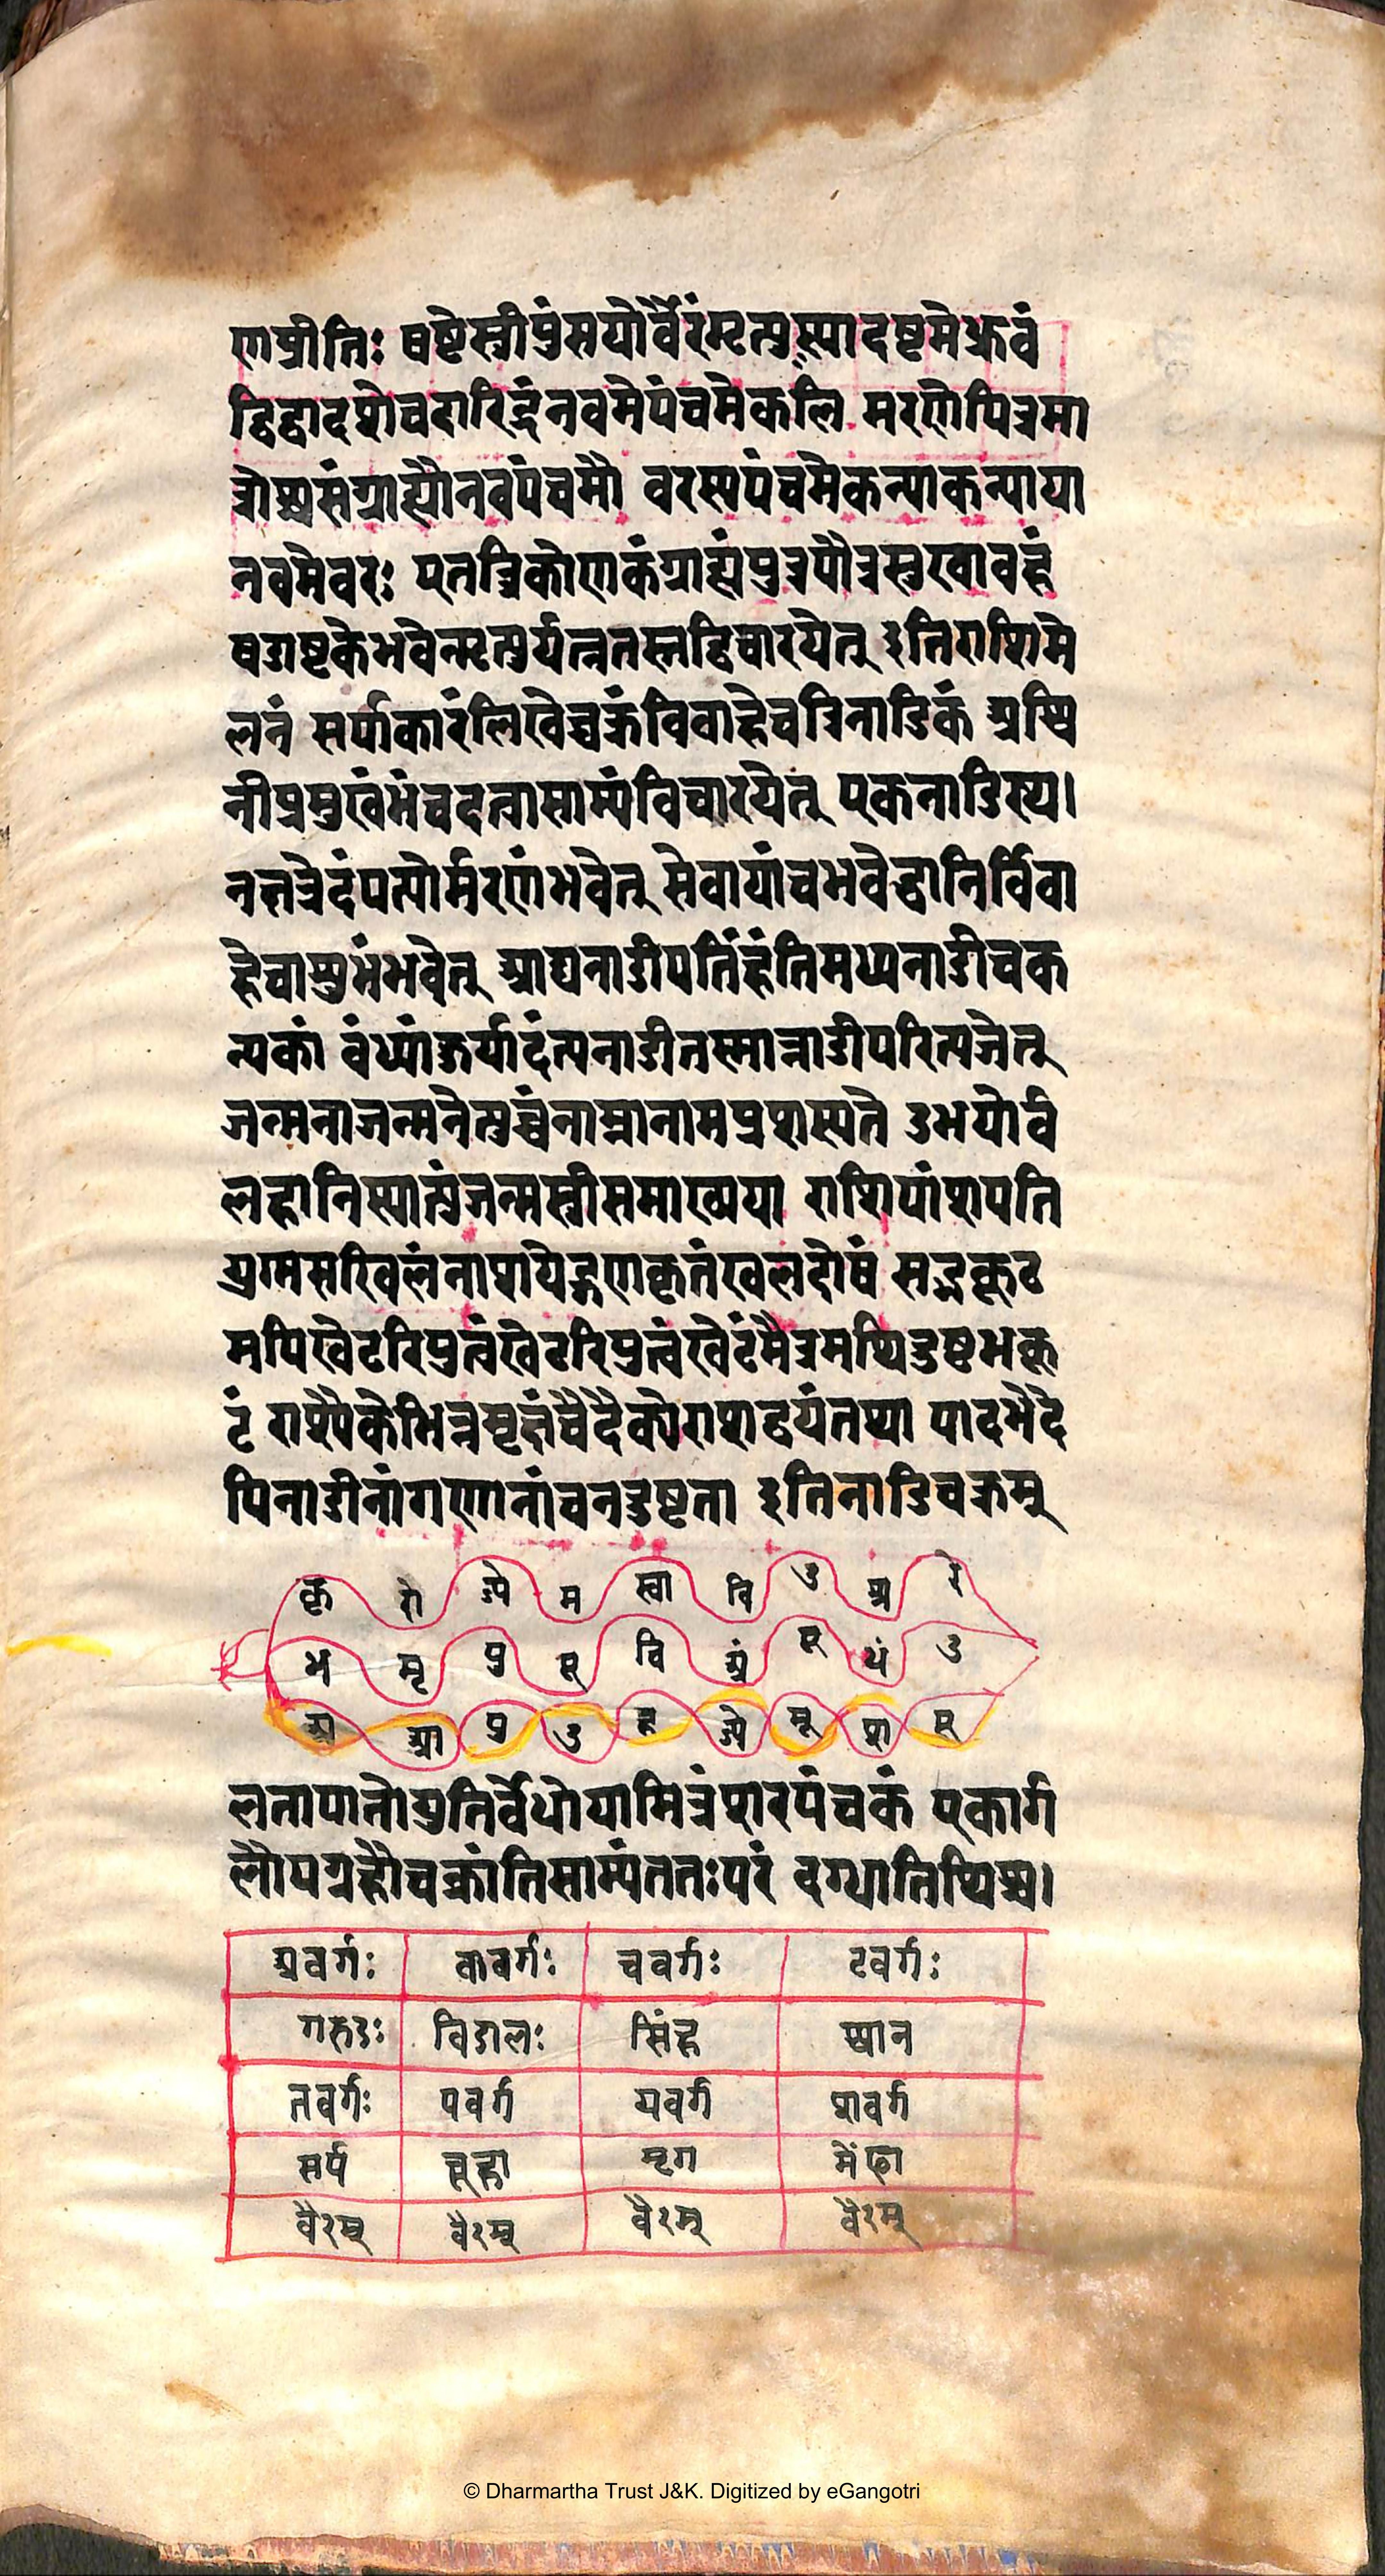 णप्रीतिः षष्टेस्त्रीपुंसयोर्वैरंमृत्युस्यादष्टमेध्रुवं
द्विद्वादशेचदारिद्रंनवमेपंचमेकलि मरणेपित्रमा
त्रोश्चसंग्राह्यौनवपंचमौ वरस्यपंचमेकन्याकन्याया
नवमेवरः एतत्रिकोणकंग्राह्यंपुत्रपौत्रसुखावहं
षडाष्टकेभवेन्मृत्युर्यत्नतस्तद्विचारयेत् इतिराशिमे
लनं सर्पाकारंलिखेच्चक्रंविवाहेचत्रिनाडिकं अश्वि
नीप्रमुखंभंचदत्वासाम्यंविचारयेत् एकनाडिस्थ।
नक्षत्रेदंपत्योर्मरणंभवेत् सेवायांचभवेद्धानिर्विवा
हेचाशुभंभवेत् आद्यनाडीपतिंहंतिमध्यनाडीचक
न्यकां वंध्यांकुर्यादंत्यनाडीतस्मान्नाडीपरित्यजेत्
जन्मनाजन्मनैतुच्चंनाम्नानामप्रशस्यते उभयोर्व
लहानिस्यात्पुंजन्मस्त्रीसमाख्यया राशिपांशपति
युग्मसखिलंनाशयेद्गणकृतंखलदोषं सद्भकूट
मपिखेटरिपुत्वंखेटरिपुत्वंखेटंमैत्रमपिदुष्टभकू
टं राश्यैकेभिन्नमृक्षंचैदैकोराशद्वयंतथा पादभेदे
पिनाडीनांगणानांचनदुष्टता इतिनाडिचक्रम्
कृ रो श्ले म स्वा वि उ श्र रे
भ मृ पु पू वि अं पू धं उ
अ आ पु उ ह ज्ये मू श पू
लतापातोयुतिर्वेधोयामित्रंपारपंचकं एकार्ग
लौपग्रहौचक्रांतिसाम्यंततःपरं दग्धातिथिश्च।
अवर्गः कवर्गः चवर्गः टवर्गः
गरुडः विडालः सिंह श्वान
तवर्गः पवर्ग यवर्ग शवर्ग
सर्प चूहा मृग मेंढा
वैरम् वैरम् वैरम् वैरम्
© Dharmartha Trust J&K. Digitized by eGangotri